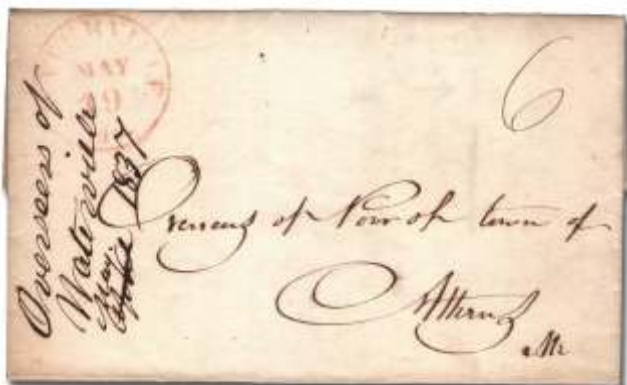 MAY
6
Overseers of
Waterville
May 1837
Overseers of Poor of town of
Athens
Me